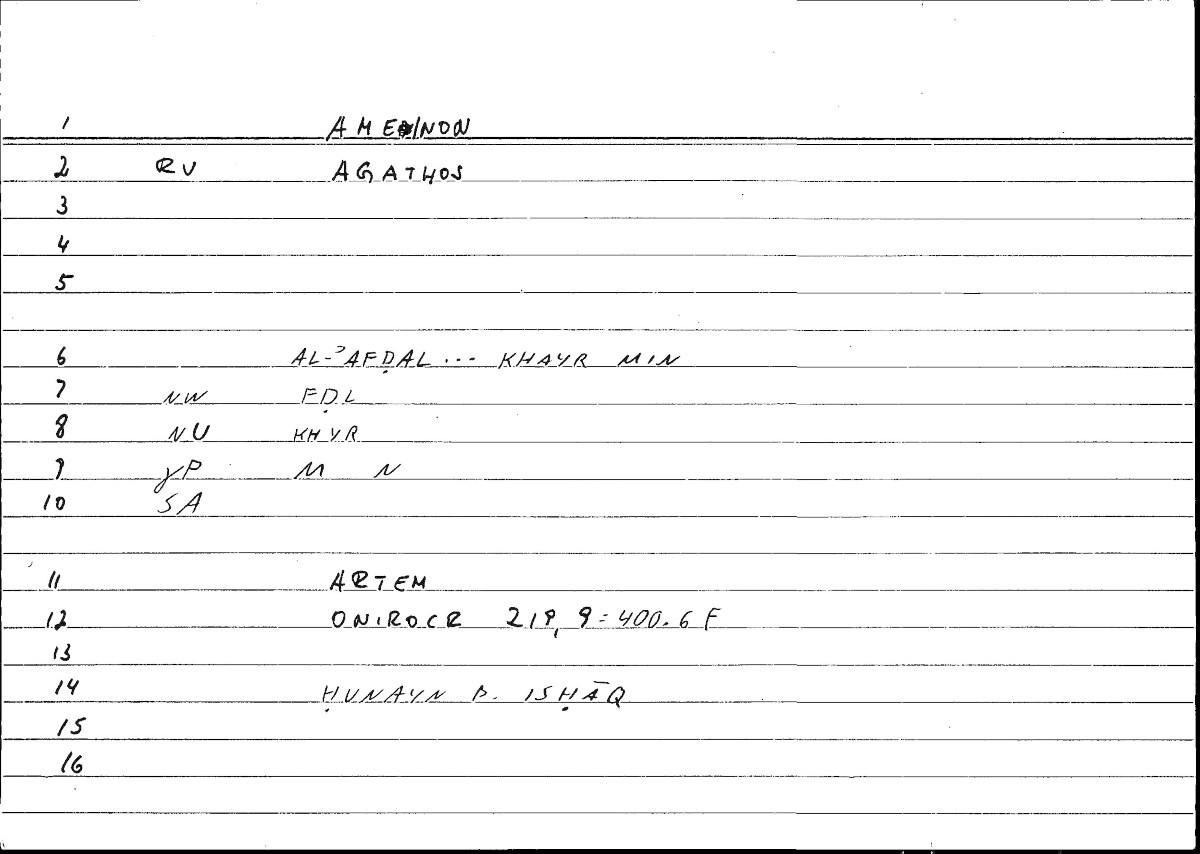 1 AMEINON
2 RV AGATHOS
3
4
5
6 AL-ʾAFḌAL ... KHAYR MIN
7 NW FḌL
8 NU KHYR
9 γP M N
10 SA
11 ARTEM
12 ONIROCR 219, 9 = 400.6 F
13
14 ḤUNAYN B. ISḤĀQ
15
16